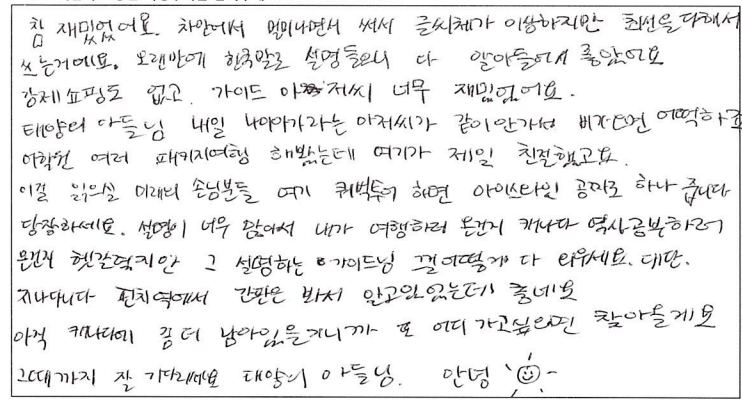 참 재밌었어요. 차안에서 멀미나면서 써서 글씨체가 이상하지만 최선을다해서
쓰는거에요. 오랜만에 한국말로 설명들으니 다 알아들어서 좋았어요
강제쇼핑도 없고. 가이드 아저씨 너무 재밌었어요.
태양의 아들님 내일 나이아가라는 아저씨가 같이안가서 비가오면 어떡하죠
어학원 여러 패키지여행 해봤는데 여기가 제일 친절했고요.
이걸 읽으실 미래의 손님분들 여기 퀘벡투어 하면 아이스와인 공짜로 하나 줍니다
당장하세요. 설명이 너무 많아서 내가 여행하러 온건지 캐나다 역사공부하러
온건지 헷갈렸지만 그 설명하는 가이드님 그걸어떻게 다 외우세요. 대단.
지나다니다 핀치역에서 간판은 봐서 알고있었는데 좋네요
아직 캐나다에 좀더 남아있을거니까 또 어디 가고싶으면 찾아올게요
그때까지 잘 기다려세요 태양의 아들님. 안녕